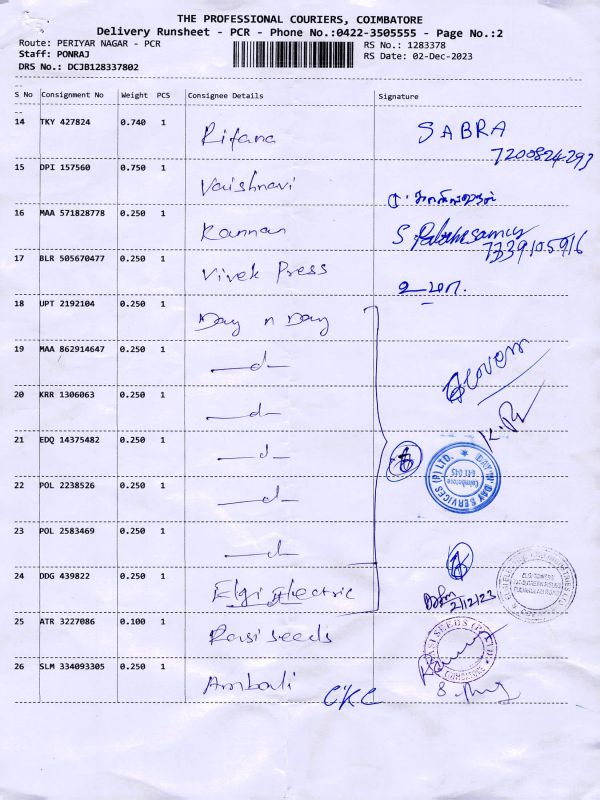 THE PROFESSIONAL COURIERS, COIMBATORE
Delivery Runsheet - PCR - Phone No.:0422-3505555 - Page No.:2
Route: PERIYAR NAGAR - PCR
RS No.: 1283378
Staff: PONRAJ
RS Date: 02-Dec-2023
DRS No.: DCJB128337802
S No Consignment No Weight PCS Consignee Details Signature
14 TKY 427824 0.740 1 Rifana SABRA
7200824293
15 DPI 157560 0.750 1 Vaishnavi
16 MAA 571828778 0.250 1 Kannan
7339105916
17 BLR 505670477 0.250 1 Vivek Press
18 UPT 2192104 0.250 1 Day n Day
19 MAA 862914647 0.250 1 —d—
20 KRR 1306063 0.250 1 —d—
21 EDQ 14375482 0.250 1 —d—
DAY 'N' DAY SERVICES (P) LTD.
Coimbatore
641 045
22 POL 2238526 0.250 1 —d—
23 POL 2583469 0.250 1 —d—
24 DDG 439822 0.250 1 Elgi Electric
2/12/23
25 ATR 3227086 0.100 1 Rasi seeds
RASI SEEDS (P) LTD
COIMBATORE
26 SLM 334093305 0.250 1 Ambali CKC